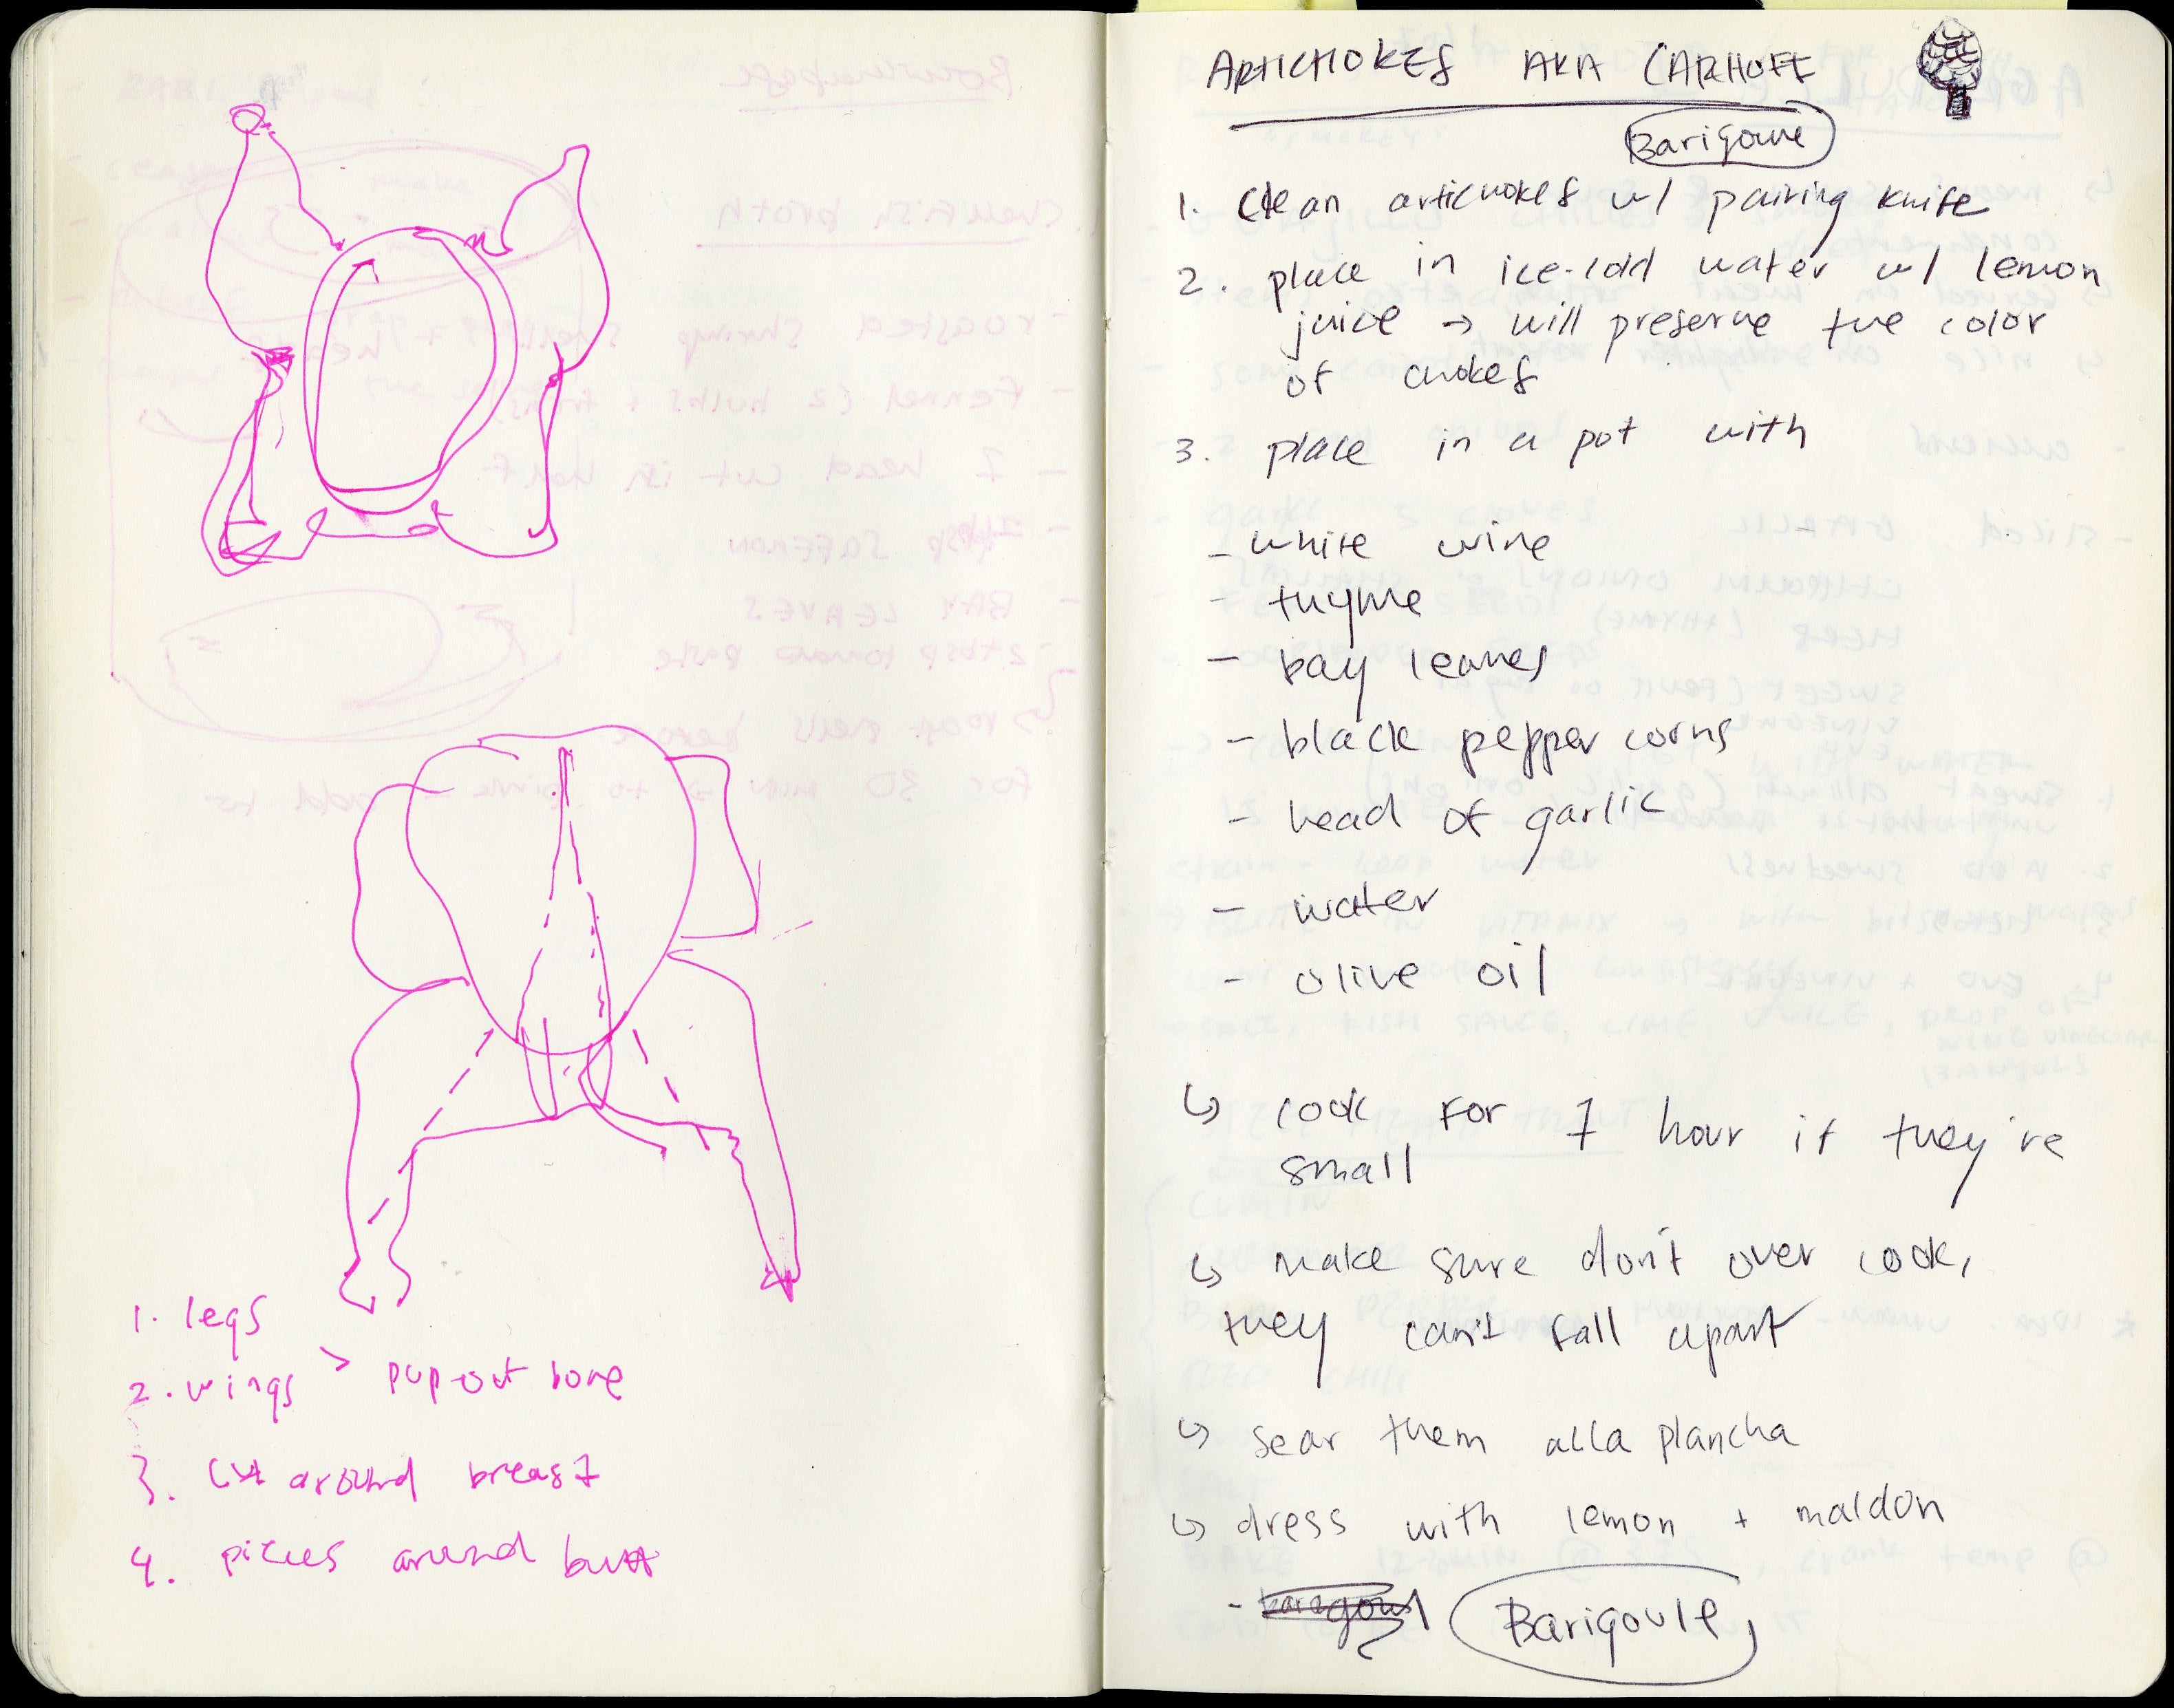 1. legs
2. wings > pop-out bone
3. cut around breast
4. pieces around butt
ARTICHOKES AKA CARHOFE
Barigoule
1. clean artichokes w/ pairing knife
2. place in ice-cold water w/ lemon
juice → will preserve the color
of chokes
3. place in a pot with
- white wine
- thyme
- bay leaves
- black pepper corns
- head of garlic
- water
- olive oil
↳ cook for 1 hour if they're
small
↳ make sure don't over cook,
they can't fall apart
↳ sear them alla plancha
↳ dress with lemon + maldon
- Barigoule